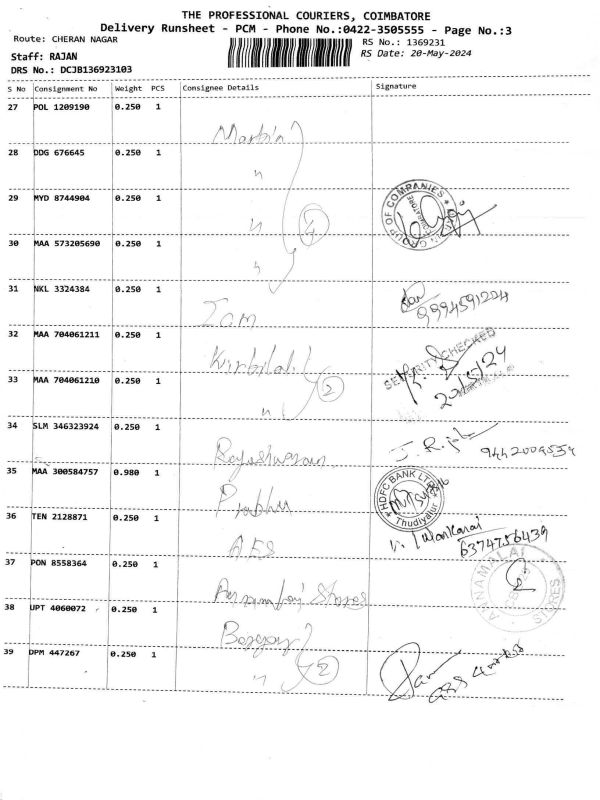 THE PROFESSIONAL COURIERS, COIMBATORE
Delivery Runsheet - PCM - Phone No.:0422-3505555 - Page No.:3
Route: CHERAN NAGAR
RS No.: 1369231
Staff: RAJAN
RS Date: 20-May-2024
DRS No.: DCJB136923103
S No Consignment No Weight PCS Consignee Details Signature
27 POL 1209190 0.250 1
Martin
28 DDG 676645 0.250 1
"
29 MYD 8744904 0.250 1
GROUP OF COMPANIES
COIMBATORE
" 4
30 MAA 573205690 0.250 1
"
31 NKL 3324384 0.250 1
9994591204
Tom
32 MAA 704061211 0.250 1
SECURITY CHECKED
2
33 MAA 704061210 0.250 1
20/5/24
"
34 SLM 346323924 0.250 1
9442009534
Rajeshwaran
35 MAA 300584757 0.980 1
HDFC BANK LTD
Thudiyalur
Prabhu
36 TEN 2128871 0.250 1
6374756439
AES
37 PON 8558364 0.250 1
ANNAMALAI STORES
Annamalai Stores
38 UPT 4060072 0.250 1
39 DPM 447267 0.250 1
" 2